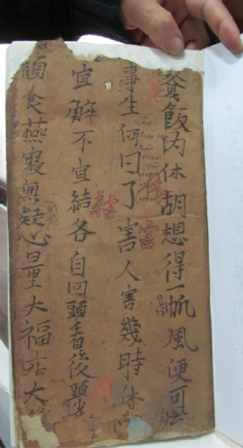 餐飯内休胡想得一帆風便可
事生何日了害人害幾時休
宜解不宜結各自回頭看後頭
食燕寢無疑心量大福亦大